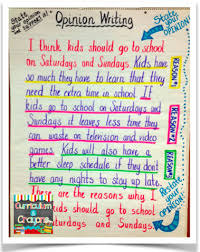 Opinion Writing
State your OPINION!
I think kids should go to school
on Saturdays and Sundays. Kids have
so much they have to learn that they
need the extra time in school. If
kids go to school on Saturdays and
Sundays it leaves less time they
can waste on television and video
games. Kids will also have a
better sleep schedule if they don't
have any nights to stay up late.
These are the reasons why I
think kids should go to school
on Saturdays and Sundays.
REASON
REASON
REASON
Restate your OPINION!
Curriculum
Crazy